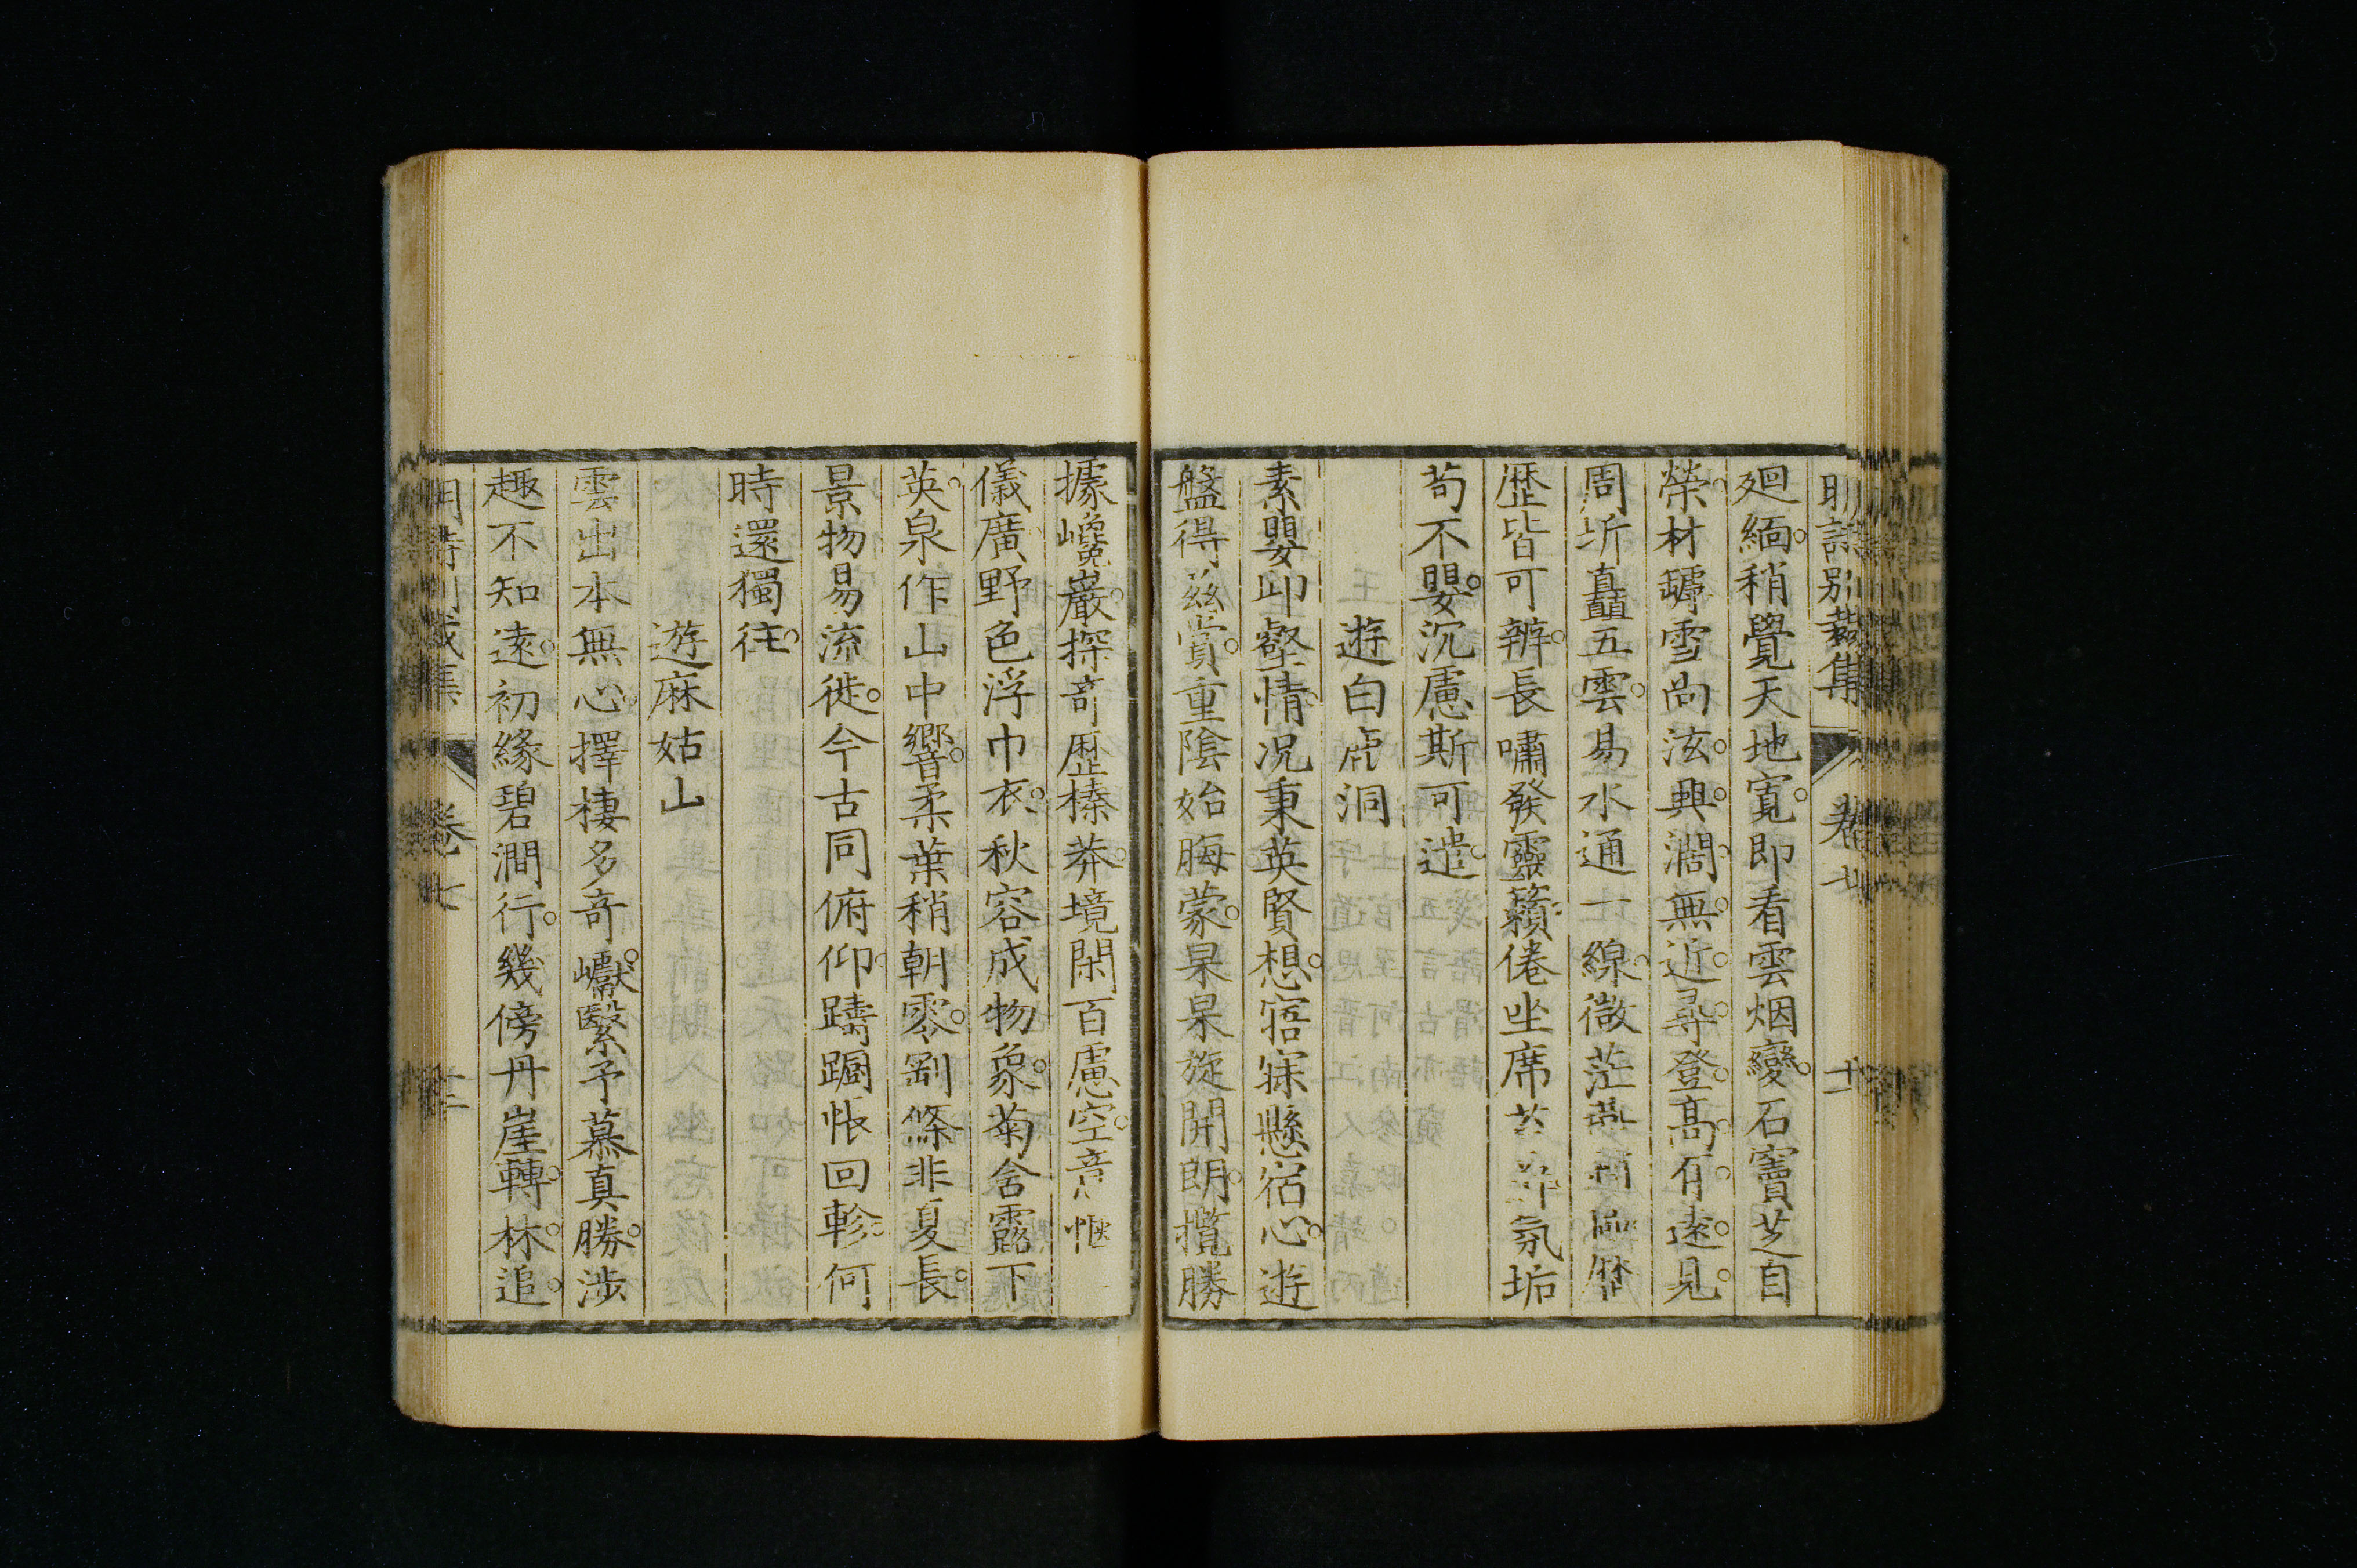 明詩別裁集 卷七 十一
廻緬稍覺天地寬即看雲烟變石竇芝自
榮材罅雪尚泫興濶無近尋登高有遠見
周圻矗五雲易水通一線微茫燕
歷皆可辨長嘯發靈籟倦坐席 氛垢
苟不嬰沉慮斯可遣
遊白虎洞
素嬰邱壑情况秉英賢想寤寐懸宿心遊
盤得茲賞重陰始晦蒙杲杲旋開朗攬勝
據巉巖探奇歷榛莽境閑百慮空意愜
儀廣野色浮巾衣秋容成物象菊舍露下
英泉作山中響柔葉稍朝零劚條非夏長
景物易流徙今古同俯仰躊躕悵回軫何
時還獨往
遊麻姑山
雲出本無心擇棲多奇巘繄予慕真勝涉
趣不知遠初緣碧澗行幾傍丹崖轉林追
明詩別裁集 卷七